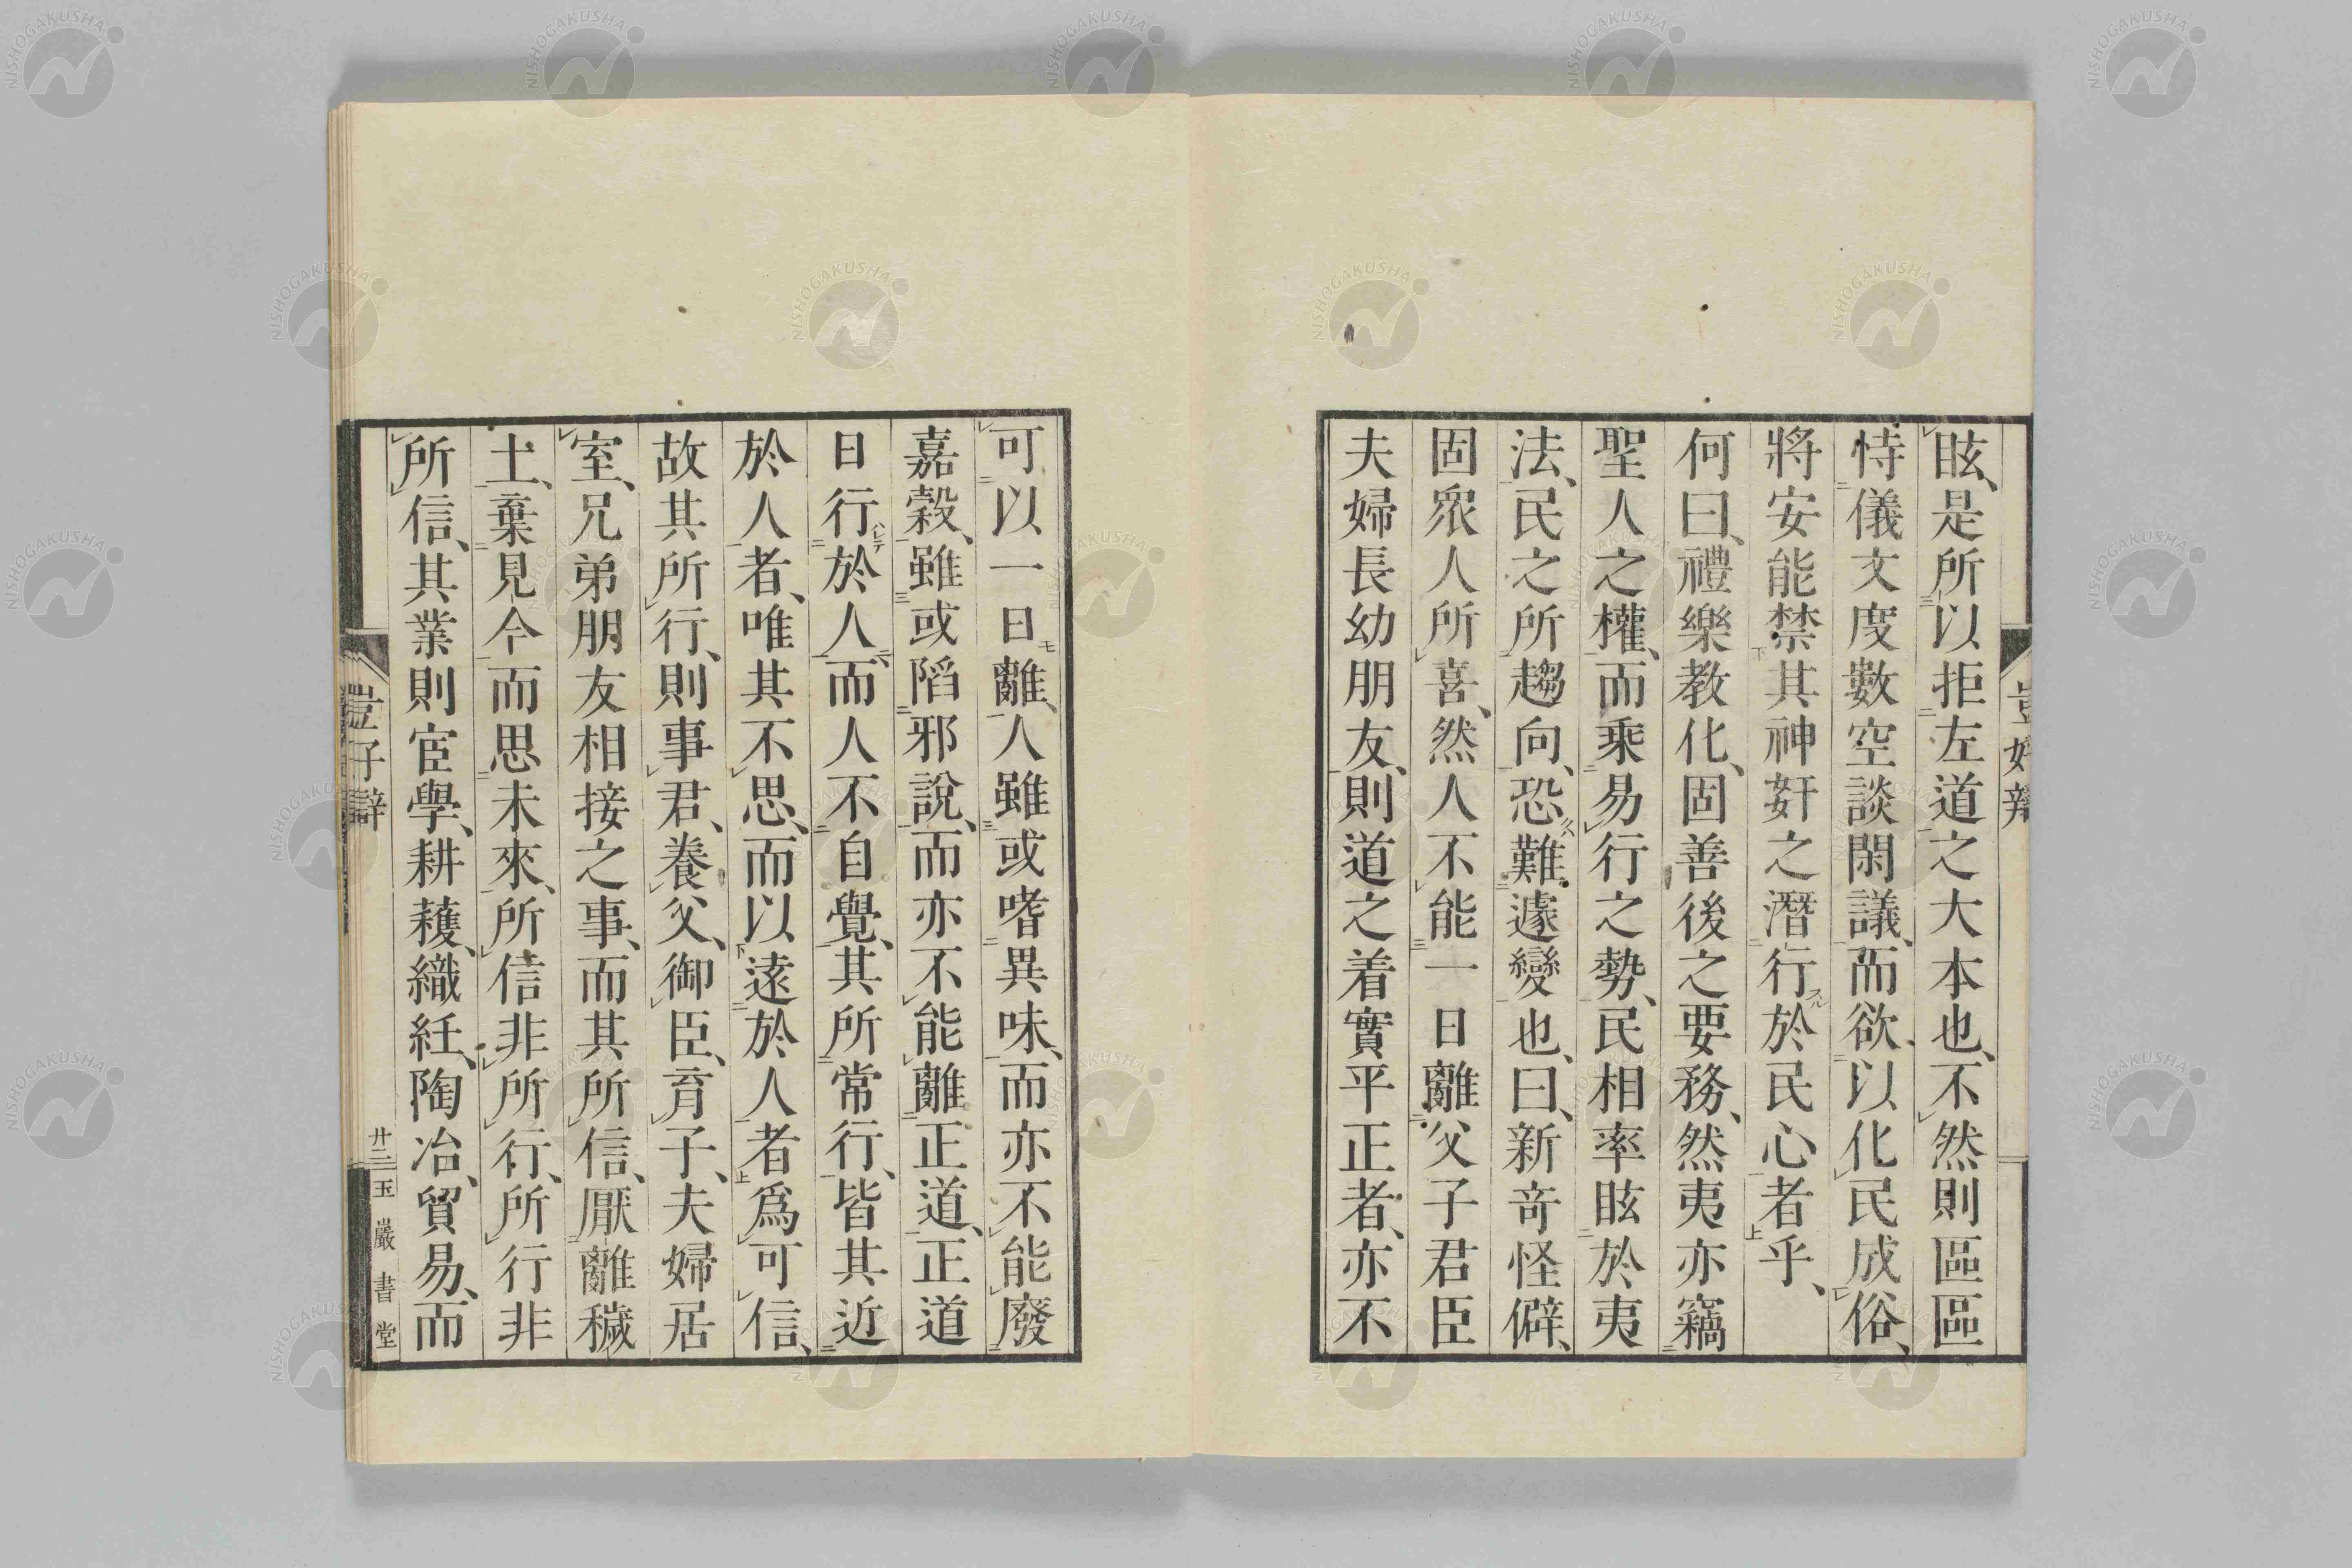 眩、是所以拒左道之大本也、不然則區區
恃儀文度數空談閑議、而欲以化民成俗、
將安能禁其神姦之潛行於民心者乎、
何曰、禮樂教化、固善後之要務、然夷亦竊
聖人之權、而乘易行之勢、民相率眩於夷
法、民之所趨向、恐難遽變也、曰、新奇怪僻、
固衆人所喜、然人不能一日離父子君臣
夫婦長幼朋友、則道之着實平正者、亦不
可以一日離、人雖或嗜異味、而亦不能廢
嘉穀、雖或陷邪說、而亦不能離正道、正道
日行於人、而人不自覺、其所常行、皆其近
於人者、唯其不思、而以遠於人者爲可信、
故其所行、則事君、養父、御臣、育子、夫婦居
室、兄弟朋友相接之事、而其所信、厭離穢
土、棄見今而思未來、所信非所行、所行非
所信、其業則宦學、耕穫、織紝、陶冶、貿易、而
廿二
玉巖書堂
NISHOGAKUSHA